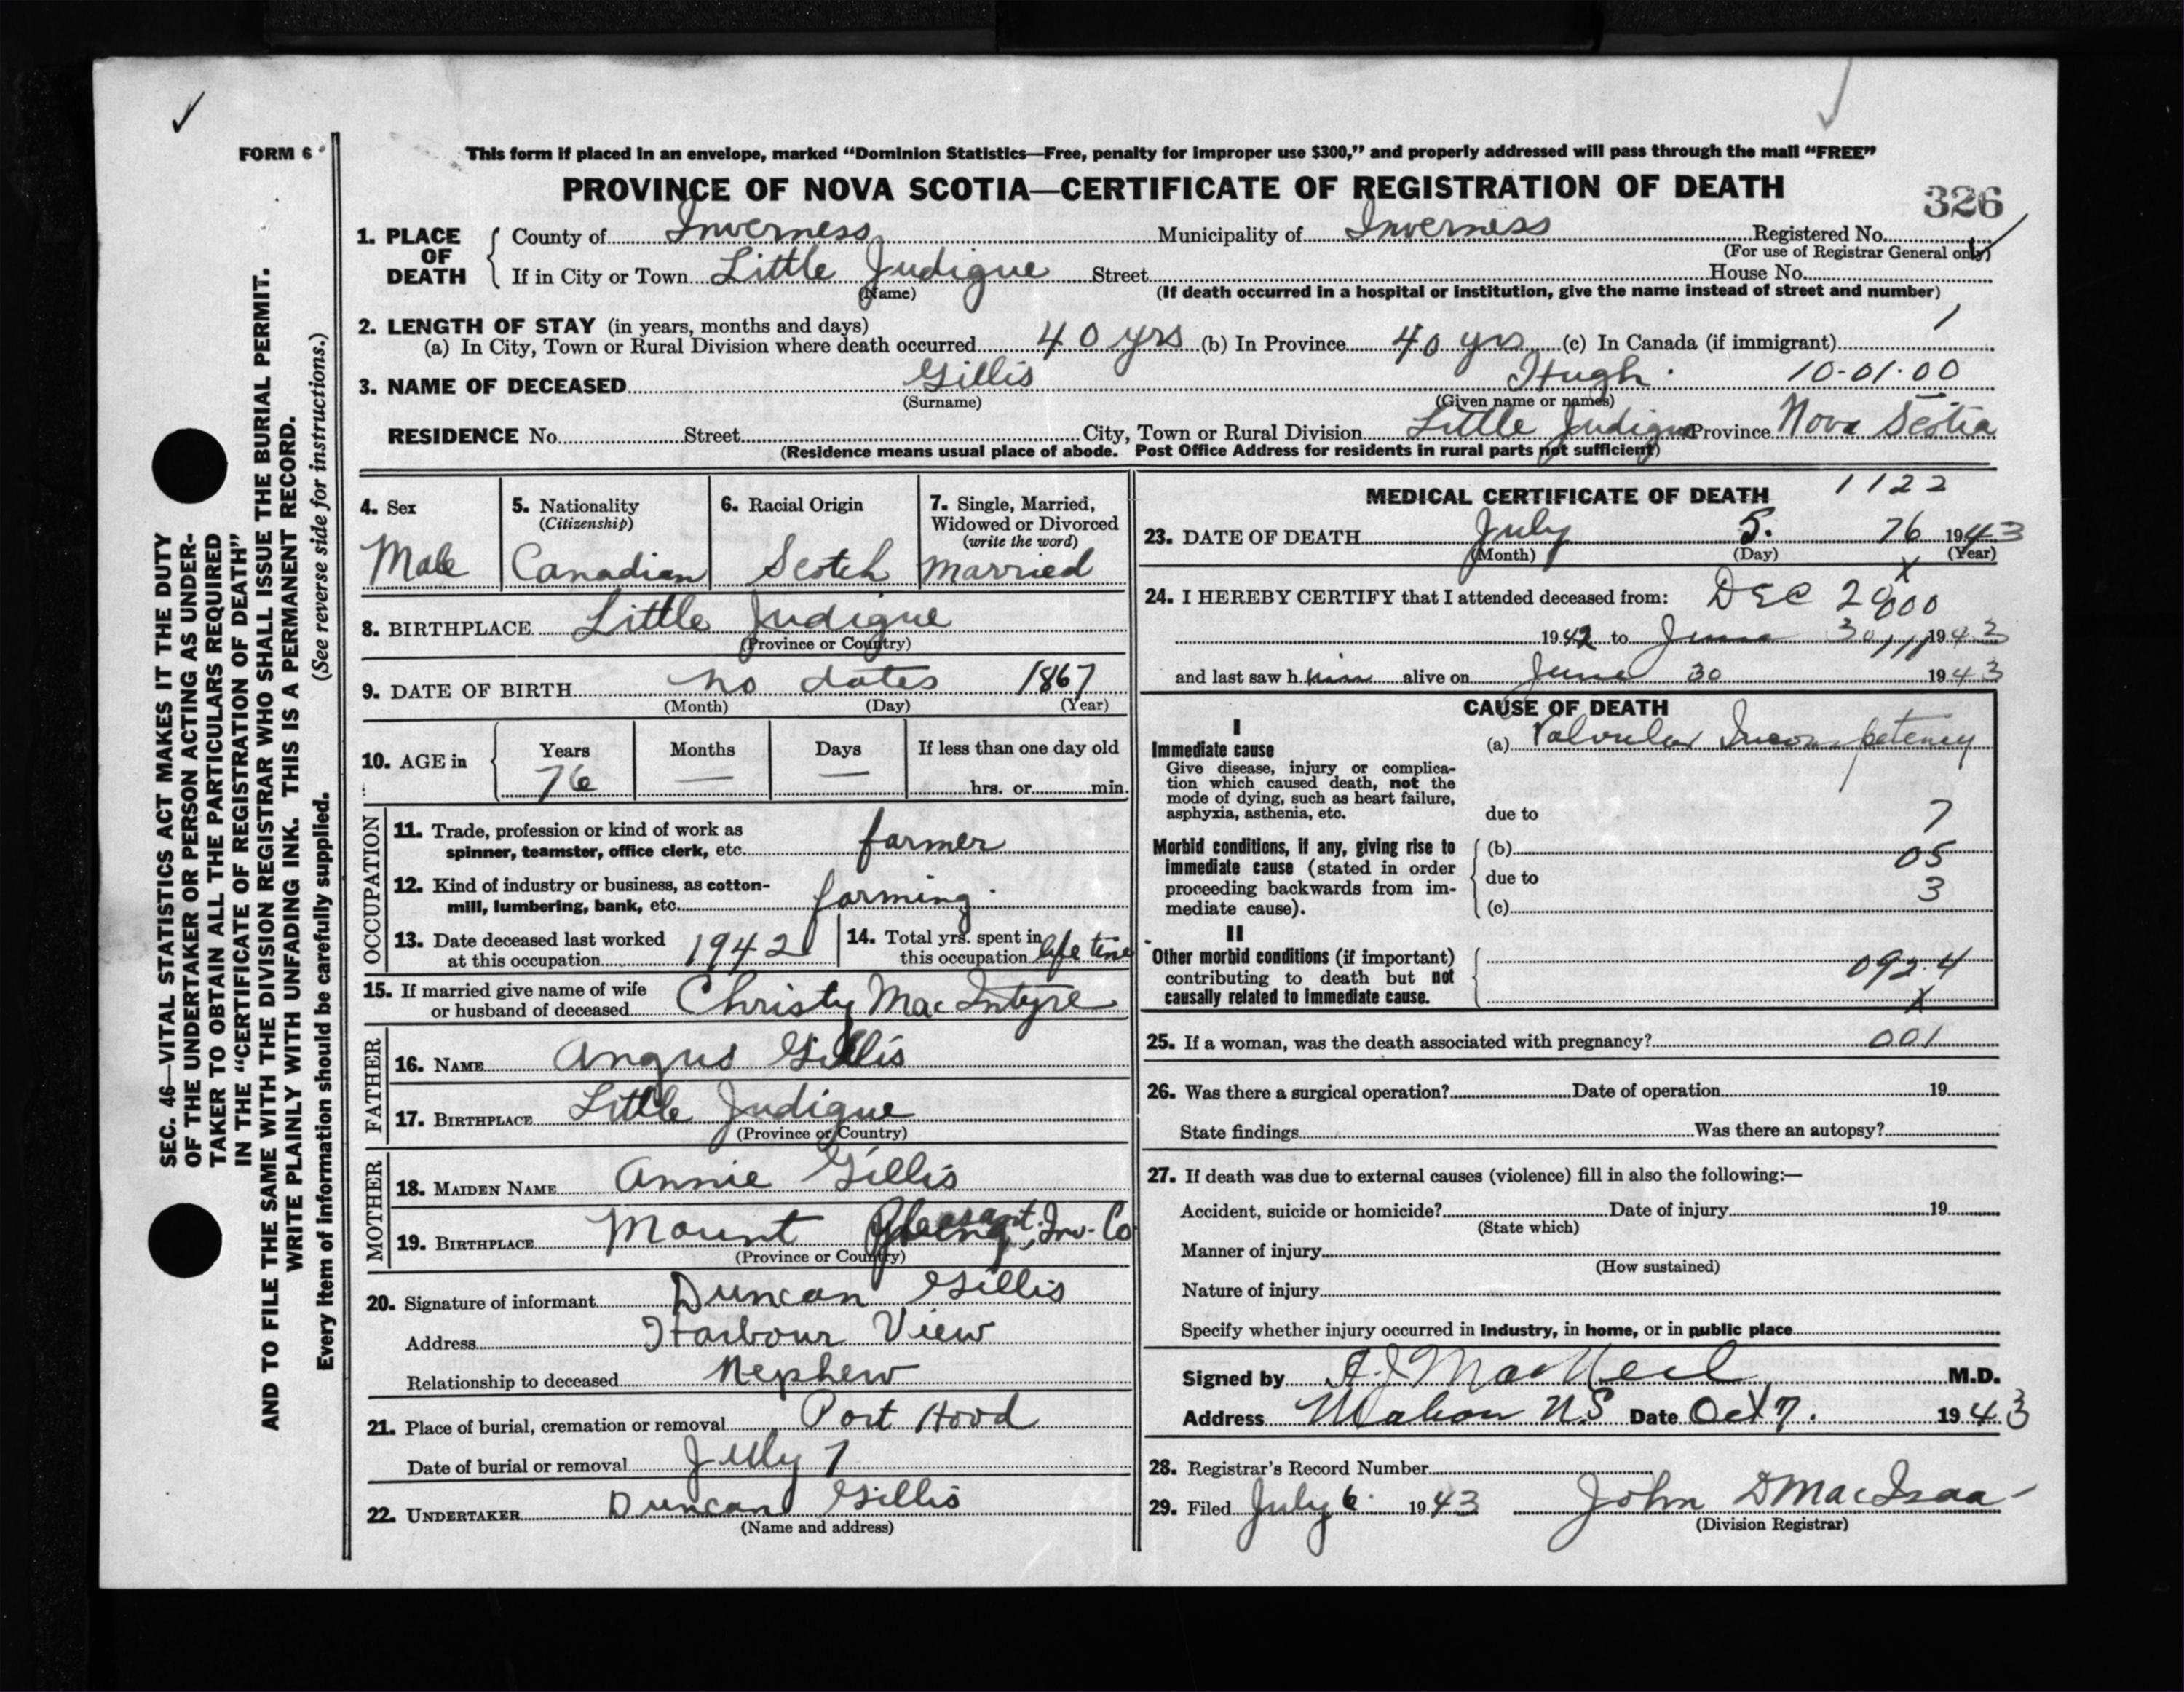 FORM 6
This form if placed in an envelope, marked “Dominion Statistics—Free, penalty for improper use $300,” and properly addressed will pass through the mail “FREE”
PROVINCE OF NOVA SCOTIA—CERTIFICATE OF REGISTRATION OF DEATH
326
1. PLACE OF DEATH
County of Inverness Municipality of Inverness Registered No.
(For use of Registrar General only)
If in City or Town Little Judigue Street House No.
(Name) (If death occurred in a hospital or institution, give the name instead of street and number)
2. LENGTH OF STAY (in years, months and days)
(a) In City, Town or Rural Division where death occurred 40 yrs (b) In Province 40 yrs (c) In Canada (if immigrant)
3. NAME OF DECEASED Gillis Hugh 10-01-00
(Surname) (Given name or names)
RESIDENCE No. Street City, Town or Rural Division Little Judigue Province Nova Scotia
(Residence means usual place of abode. Post Office Address for residents in rural parts not sufficient)
SEC. 46—VITAL STATISTICS ACT MAKES IT THE DUTY
OF THE UNDERTAKER OR PERSON ACTING AS UNDER-
TAKER TO OBTAIN ALL THE PARTICULARS REQUIRED
IN THE “CERTIFICATE OF REGISTRATION OF DEATH”
AND TO FILE THE SAME WITH THE DIVISION REGISTRAR WHO SHALL ISSUE THE BURIAL PERMIT.
WRITE PLAINLY WITH UNFADING INK. THIS IS A PERMANENT RECORD.
Every item of information should be carefully supplied. (See reverse side for instructions.)
4. Sex
Male
5. Nationality
(Citizenship)
Canadian
6. Racial Origin
Scotch
7. Single, Married,
Widowed or Divorced
(write the word)
Married
8. BIRTHPLACE Little Judigue
(Province or Country)
9. DATE OF BIRTH no dates 1867
(Month) (Day) (Year)
10. AGE in
Years Months Days If less than one day old
76 — — hrs. or min.
OCCUPATION
11. Trade, profession or kind of work as
spinner, teamster, office clerk, etc. farmer
12. Kind of industry or business, as cotton-
mill, lumbering, bank, etc. farming
13. Date deceased last worked
at this occupation 1942
14. Total yrs. spent in
this occupation life time
15. If married give name of wife
or husband of deceased Christy MacIntyre
FATHER
16. NAME Angus Gillis
17. BIRTHPLACE Little Judigue
(Province or Country)
MOTHER
18. MAIDEN NAME Annie Gillis
19. BIRTHPLACE Mount Pleasant, Inv. Co
(Province or Country)
20. Signature of informant Duncan Gillis
Address Harbour View
Relationship to deceased Nephew
21. Place of burial, cremation or removal Port Hood
Date of burial or removal July 7
22. UNDERTAKER Duncan Gillis
(Name and address)
MEDICAL CERTIFICATE OF DEATH 1122
23. DATE OF DEATH July 5. 76 1943
(Month) (Day) (Year)
x
24. I HEREBY CERTIFY that I attended deceased from: DEC 000
1942 to June 30 111 1943
and last saw him alive on June 30 1943
CAUSE OF DEATH
I
Immediate cause
Give disease, injury or complica-
tion which caused death, not the
mode of dying, such as heart failure,
asphyxia, asthenia, etc.
(a) Valvular Incompetency
due to 7
Morbid conditions, if any, giving rise to
immediate cause (stated in order
proceeding backwards from im-
mediate cause).
(b) 05
due to 3
(c)
II
Other morbid conditions (if important)
contributing to death but not
causally related to immediate cause.
092.4
x
25. If a woman, was the death associated with pregnancy? 001
26. Was there a surgical operation? Date of operation 19
State findings Was there an autopsy?
27. If death was due to external causes (violence) fill in also the following:—
Accident, suicide or homicide? Date of injury 19
(State which)
Manner of injury
(How sustained)
Nature of injury
Specify whether injury occurred in industry, in home, or in public place
Signed by A. J. MacNeil M.D.
Address Mabou N.S Date Oct 7. 1943
28. Registrar’s Record Number
29. Filed July 6 1943 John D MacIsaa
(Division Registrar)